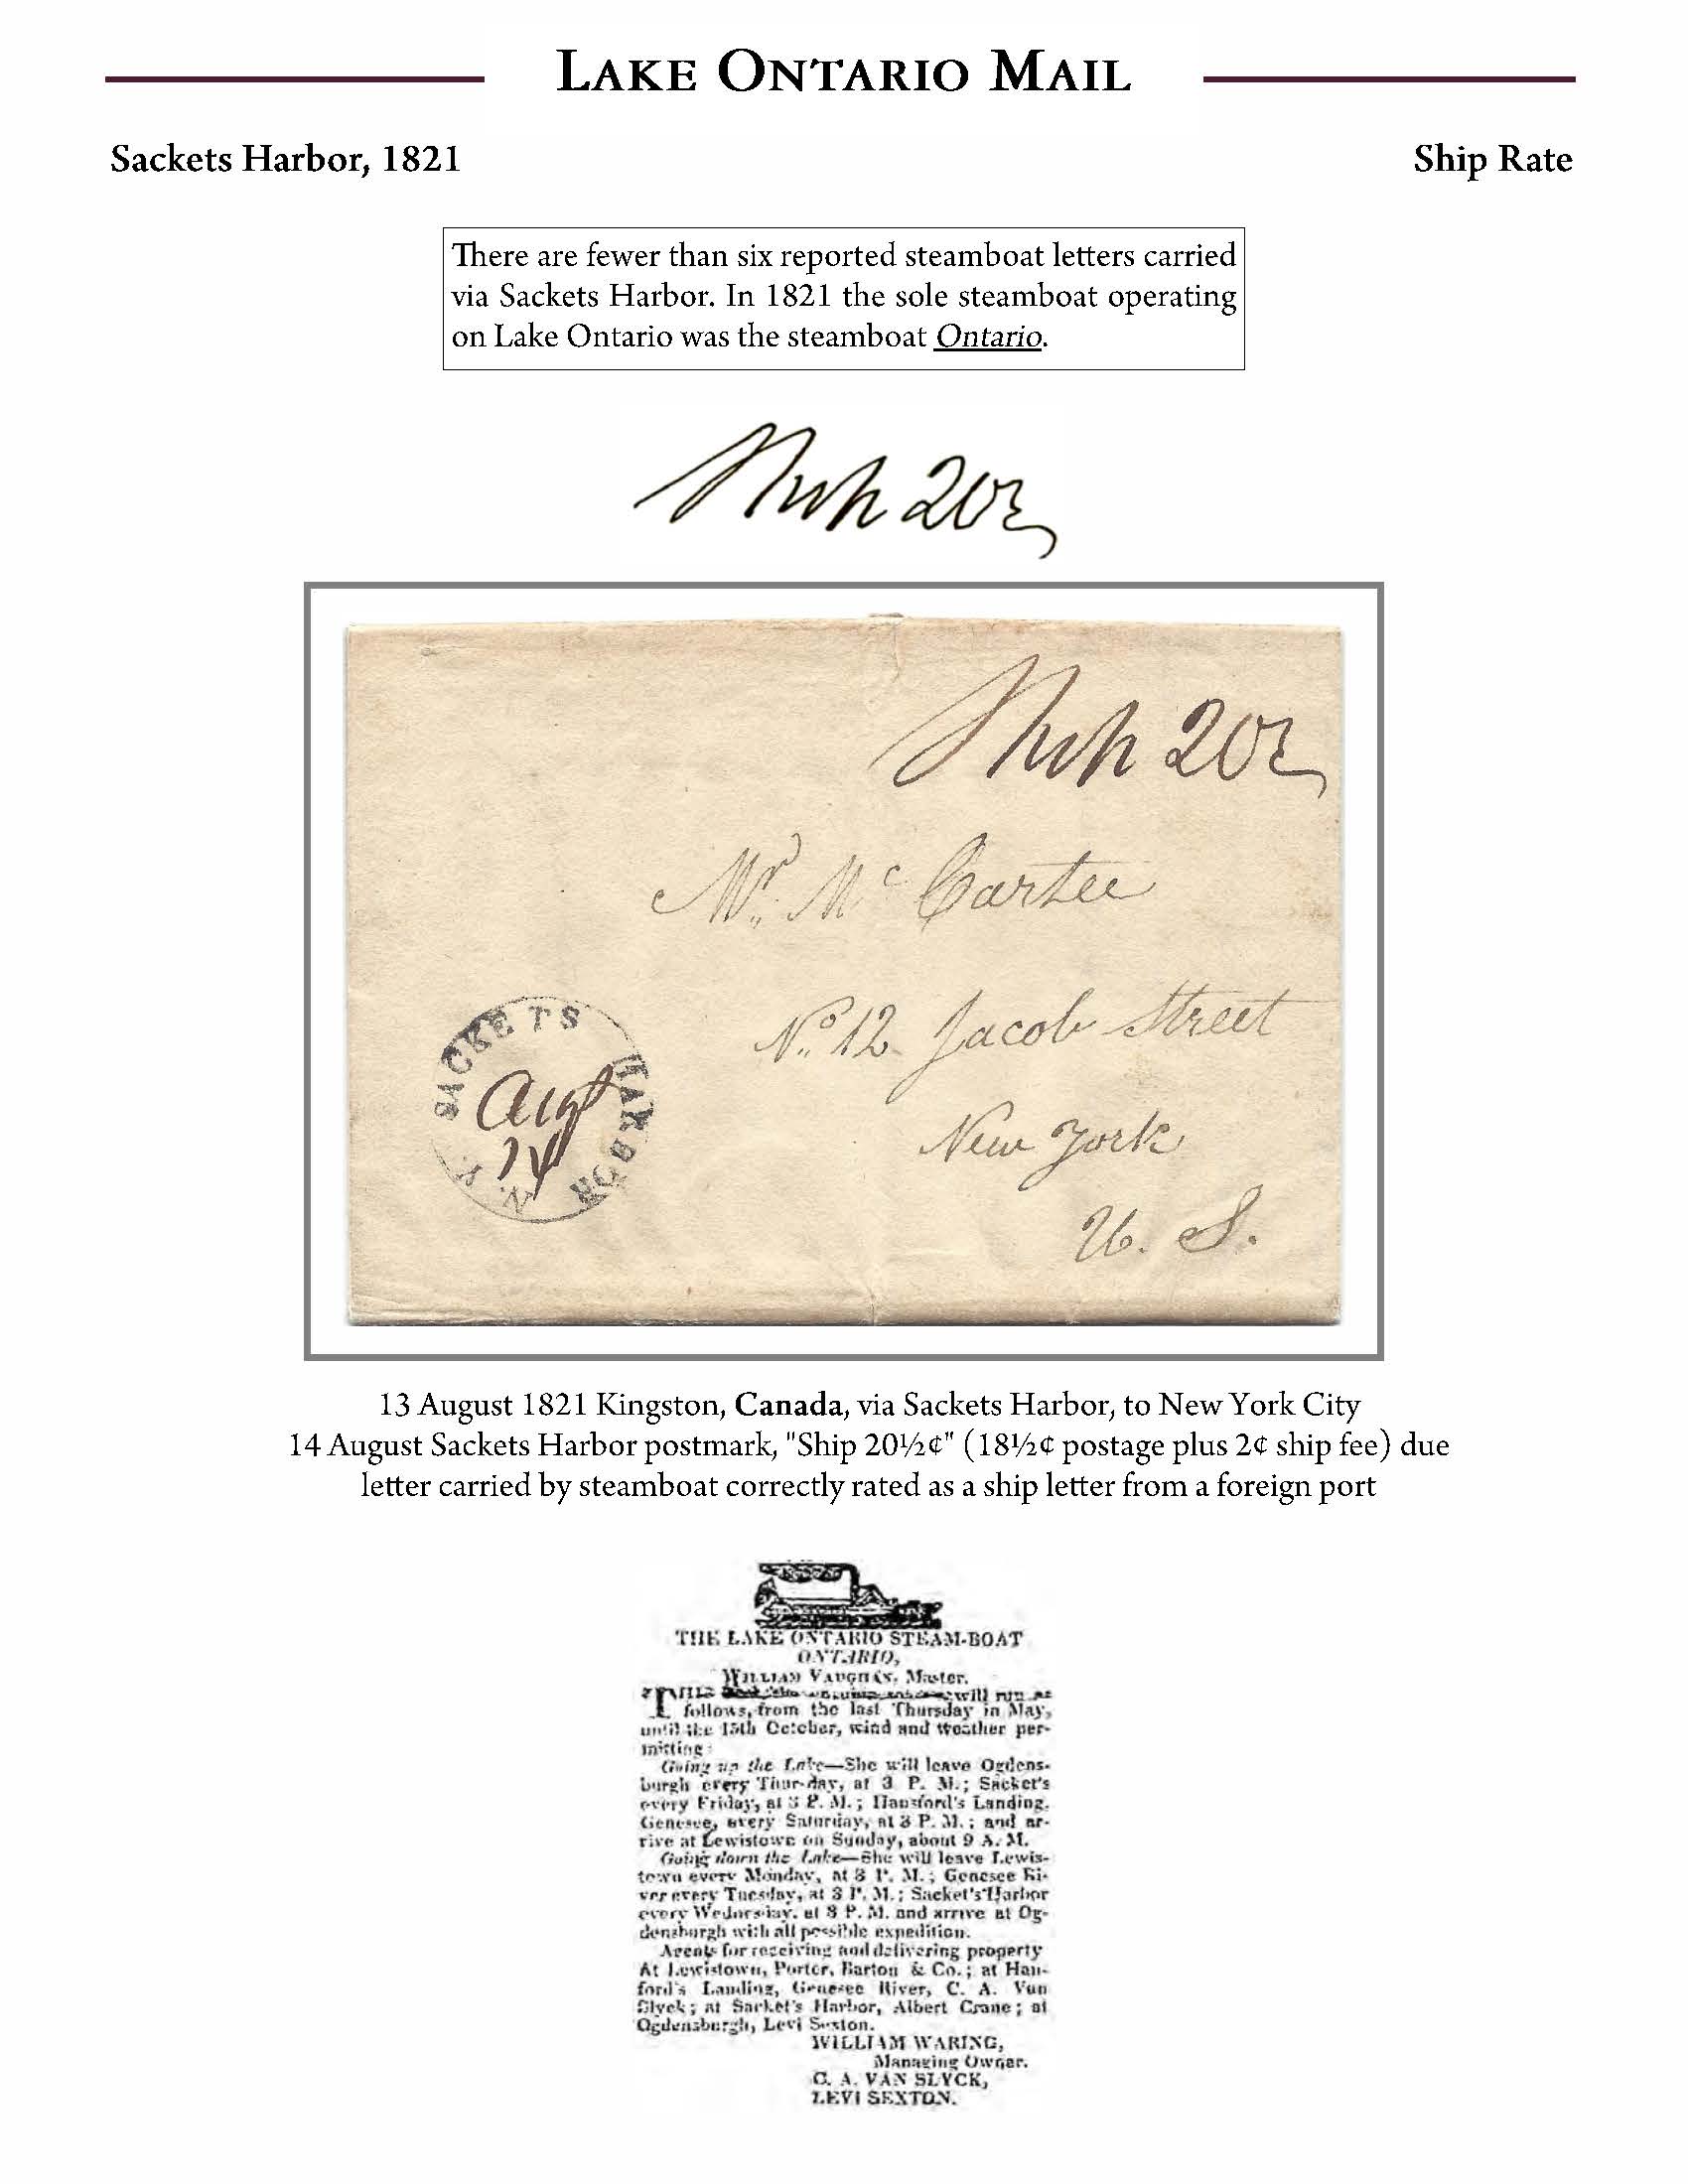 LAKE ONTARIO MAIL
Sackets Harbor, 1821
Ship Rate
There are fewer than six reported steamboat letters carried
via Sackets Harbor. In 1821 the sole steamboat operating
on Lake Ontario was the steamboat Ontario.
Ship 20½
Ship 20½
Mr. Mc Cartee
No. 12 Jacob Street
New York
U. S.
SACKETS HARBOR N.Y.
Augt
14
13 August 1821 Kingston, Canada, via Sackets Harbor, to New York City
14 August Sackets Harbor postmark, "Ship 20½¢" (18½¢ postage plus 2¢ ship fee) due
letter carried by steamboat correctly rated as a ship letter from a foreign port
THE LAKE ONTARIO STEAM-BOAT
ONTARIO,
WILLIAM VAUGHAN, Master.
THIS will run as
follows, from the last Thursday in May,
until the 15th October, wind and weather per-
mitting:
Going up the Lake—She will leave Ogdens-
burgh every Thursday, at 3 P. M.; Sacket's
every Friday, at 3 P. M.; Hansford's Landing,
Genesee, every Saturday, at 3 P. M.; and ar-
rive at Lewistown on Sunday, about 9 A. M.
Going down the Lake—She will leave Lewis-
town every Monday, at 3 P. M.; Genesee Ri-
ver every Tuesday, at 3 P. M.; Sacket's Harbor
every Wednesday, at 8 P. M. and arrive at Og-
densburgh with all possible expedition.
Agents for receiving and delivering property
At Lewistown, Porter, Barton & Co.; at Han-
ford's Landing, Genesee River, C. A. Van
Slyck; at Sacket's Harbor, Albert Crane; at
Ogdensburgh, Levi Sexton.
WILLIAM WARING,
Managing Owner.
C. A. VAN SLYCK,
LEVI SEXTON.